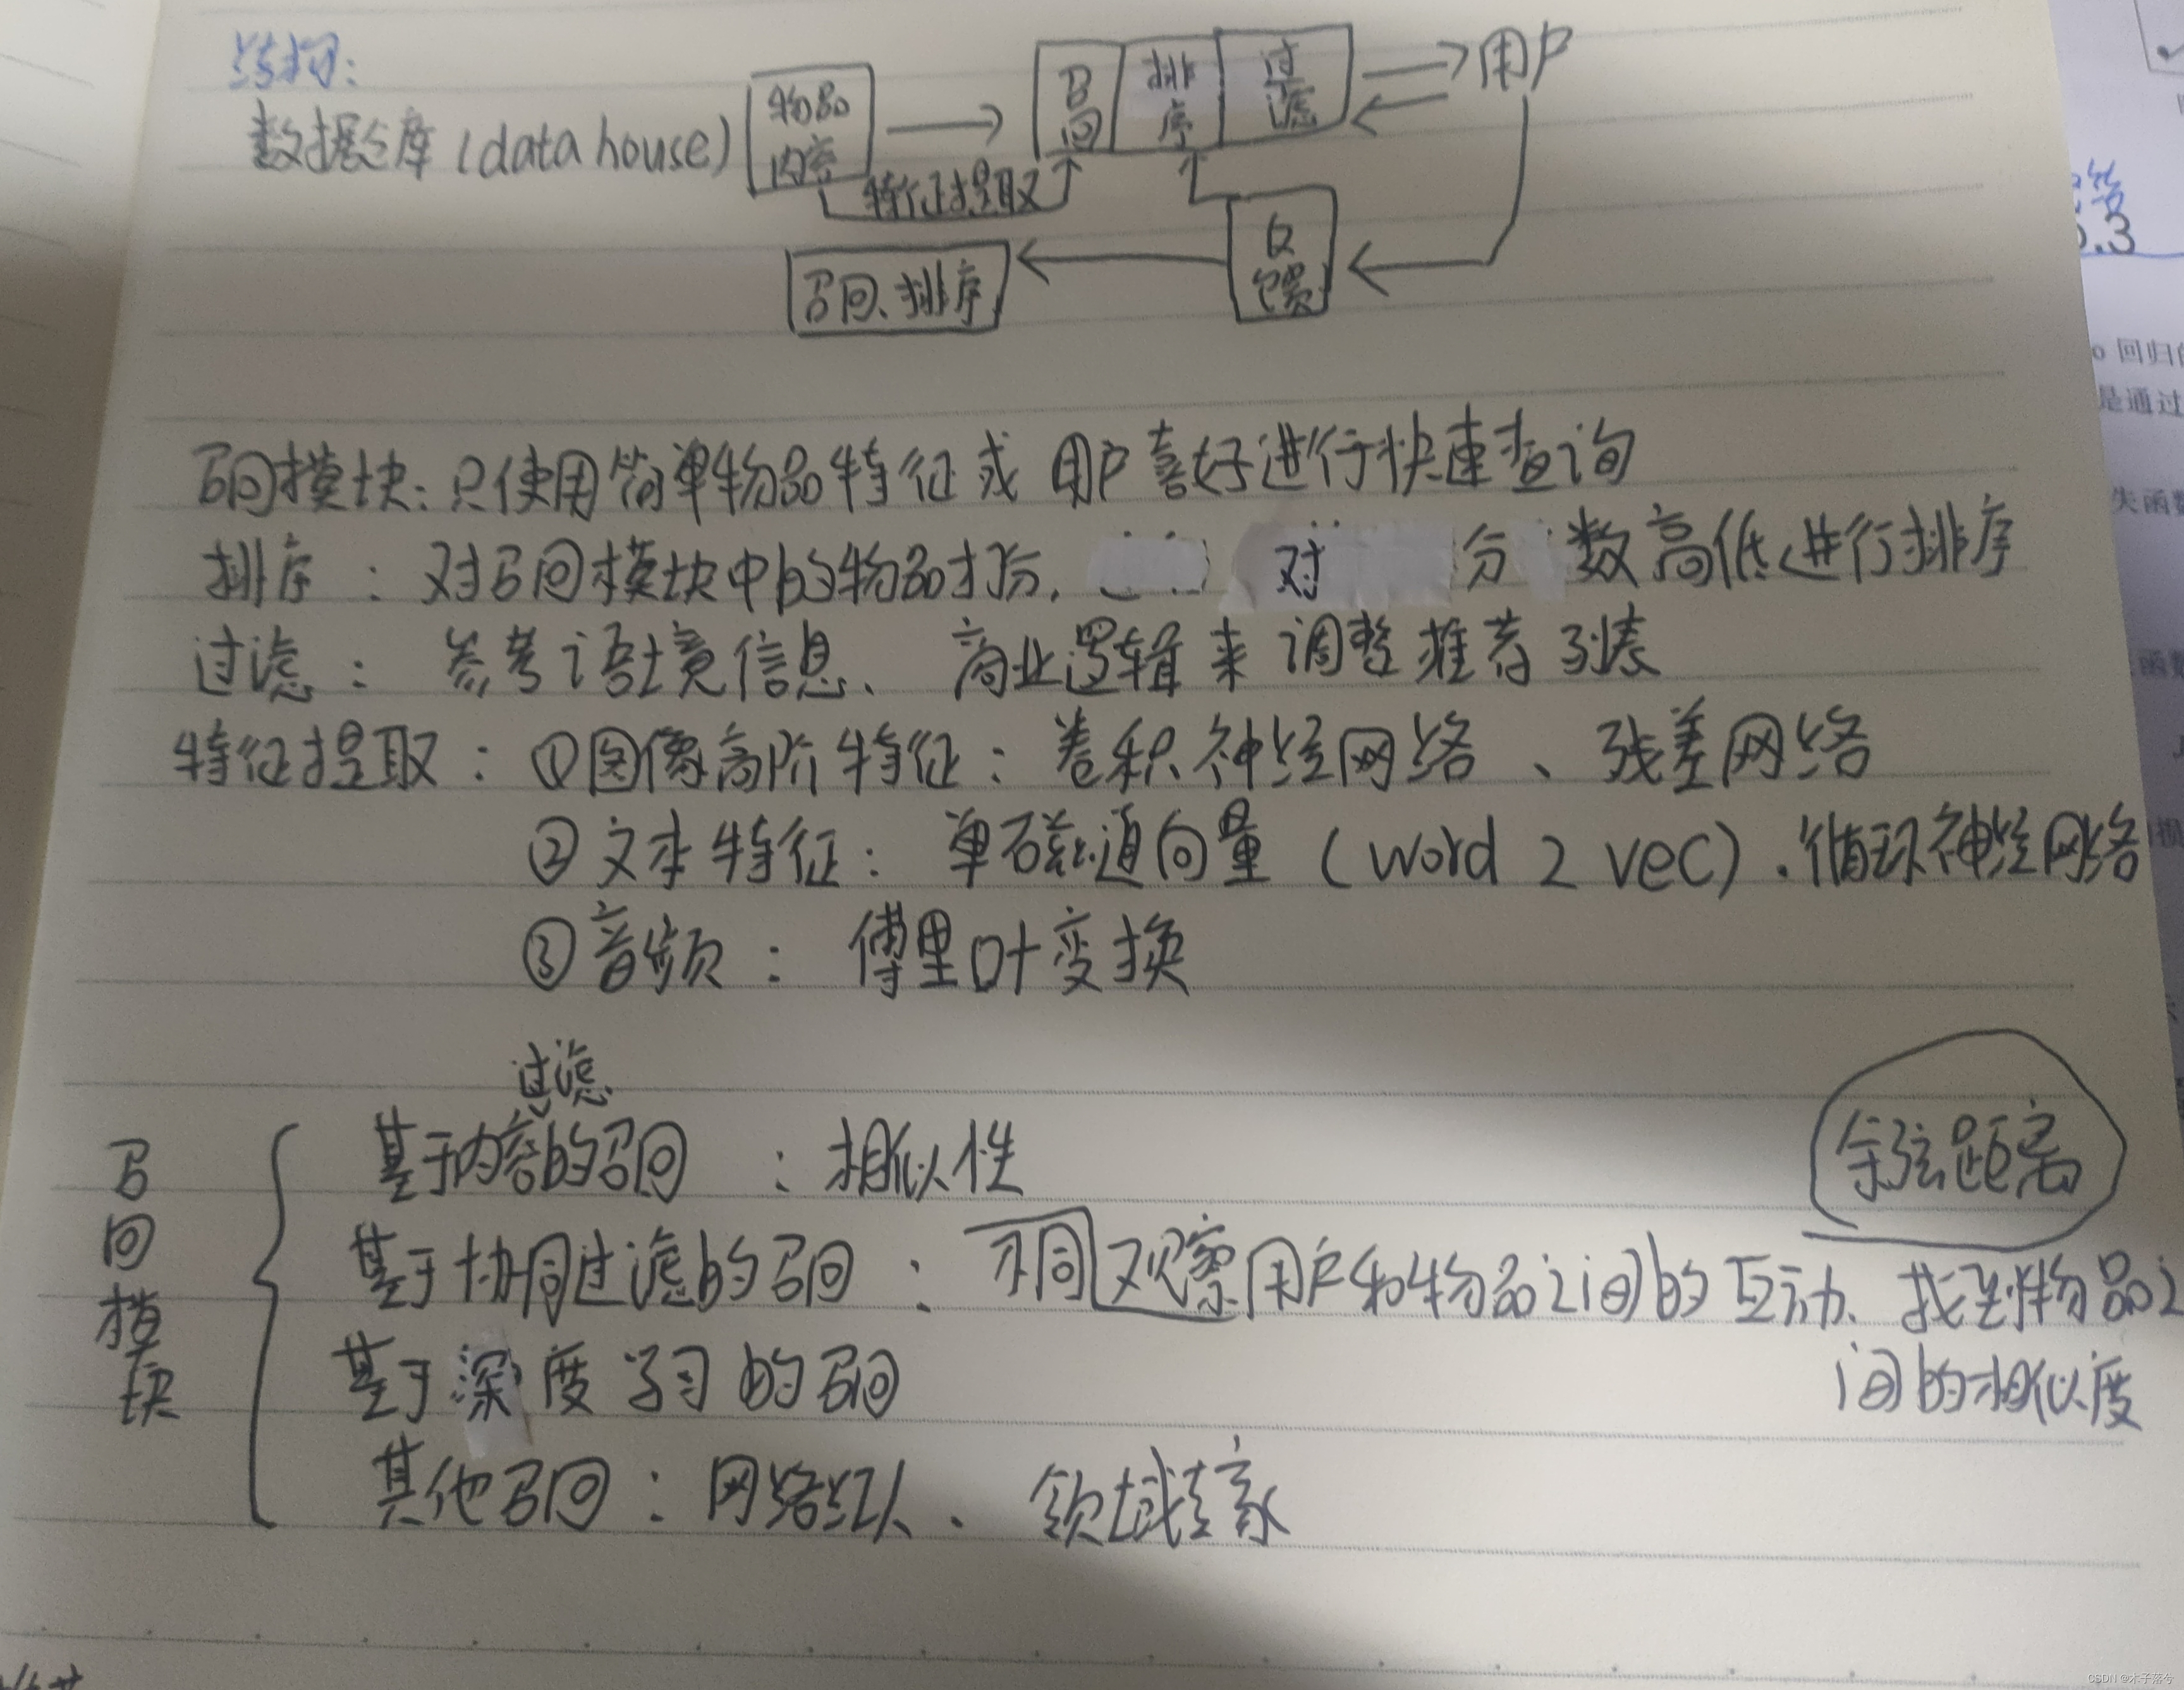 结构:
数据仓库(data house)
物品
内容
召回
排序
过滤
用户
特征提取
召回、排序
反馈
召回模块:只使用简单物品特征或用户喜好进行快速查询
排序:对召回模块中的物品打分, 对 分数高低进行排序
过滤:参考语境信息、商业逻辑来调整推荐列表
特征提取:①图像高阶特征:卷积神经网络、残差网络
②文本特征:单磁通向量(word 2 vec)、循环神经网络
③音频:傅里叶变换
过滤
召回模块
基于内容的召回:相似性
余弦距离
基于协同过滤的召回:不同观察用户和物品之间的互动、找到物品之
间的相似度
基于深度学习的召回
其他召回:网络红人、领域专家
5.3
回归
是通过
失函数
函数
CSDN @木子落兮